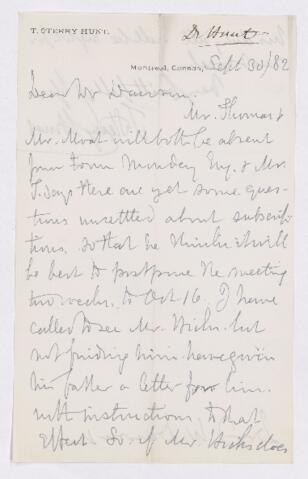 T. STERRY HUNT.
Dr Hunt
Montreal, Canada, Sept 30/82
Dear Dr Dawson.
Mr. Thomas &
Mr. Most will both be absent
from town Monday Evg. & Mr.
T. says there are yet some ques-
tions unsettled about subscrip-
tions, so that he thinks it will
be best to postpone the meeting
two weeks, to Oct 16. I have
called to see Mr. Hicks. but
not finding him. have given
his father a letter for him.
with instructions to that
effect So if Mr. Hicks does